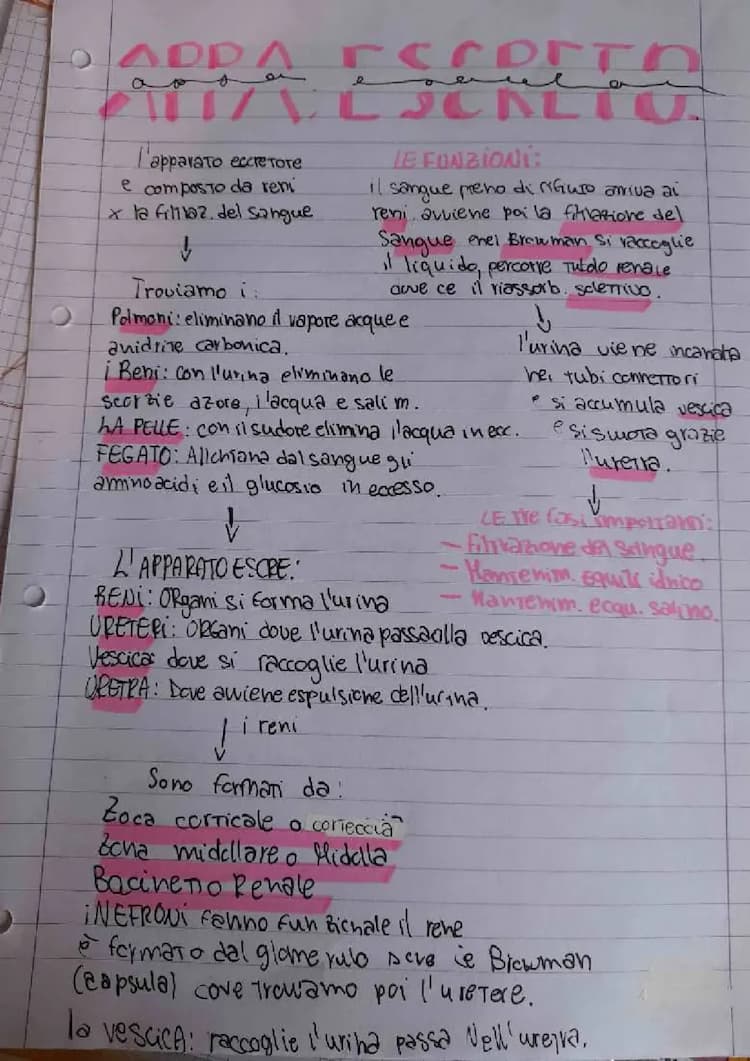 APPA. ESCRETO.
l'apparato eccretore
e composto da reni
x la filtraz. del sangue
Troviamo i:
Polmoni: eliminano il vapore acque e
anidrire carbonica.
i Reni: con l'urina eliminano le
scorzie azore, l'acqua e sali m.
LA PELLE: con il sudore elimina l'acqua in ecc.
FEGATO: dal sangue gli
aminoacidi e il glucosio in eccesso.
L'APPARATO ESCRE:
RENI: ORgani si forma l'urina
URETERI: ORGani dove l'urina passa alla vescica.
Vescica: dove si raccoglie l'urina
URETRA: Dove avviene espulsione dell'urina.
i reni
Sono formati da:
Zoca corticale o corteccia
Zona midollare o Midolla
Bacineto Renale
i NEFRONI fanno funzionale il rene
è formato dal glomerulo Browman
(capsula) cove troviamo poi l'uretere.
la VESCICA: raccoglie l'urina passa Nell'uretra.
LE FUNZIONI:
il sangue pieno di rifiuto arriva ai
reni. avviene poi la filtrazione del
Sangue enel Browman si raccoglie
il liquido, percorre Tubolo renale
dove ce il riassorb. selettivo.
l'urina viene incanalata
nei tubi connettori
e si accumula vescica
e si svuota grazie
l'uretra.
LE tre fasi importanti:
- Filtrazione del Sangue
- Mantenim. Equili idrico
- Mantenim. ecqu. salino.